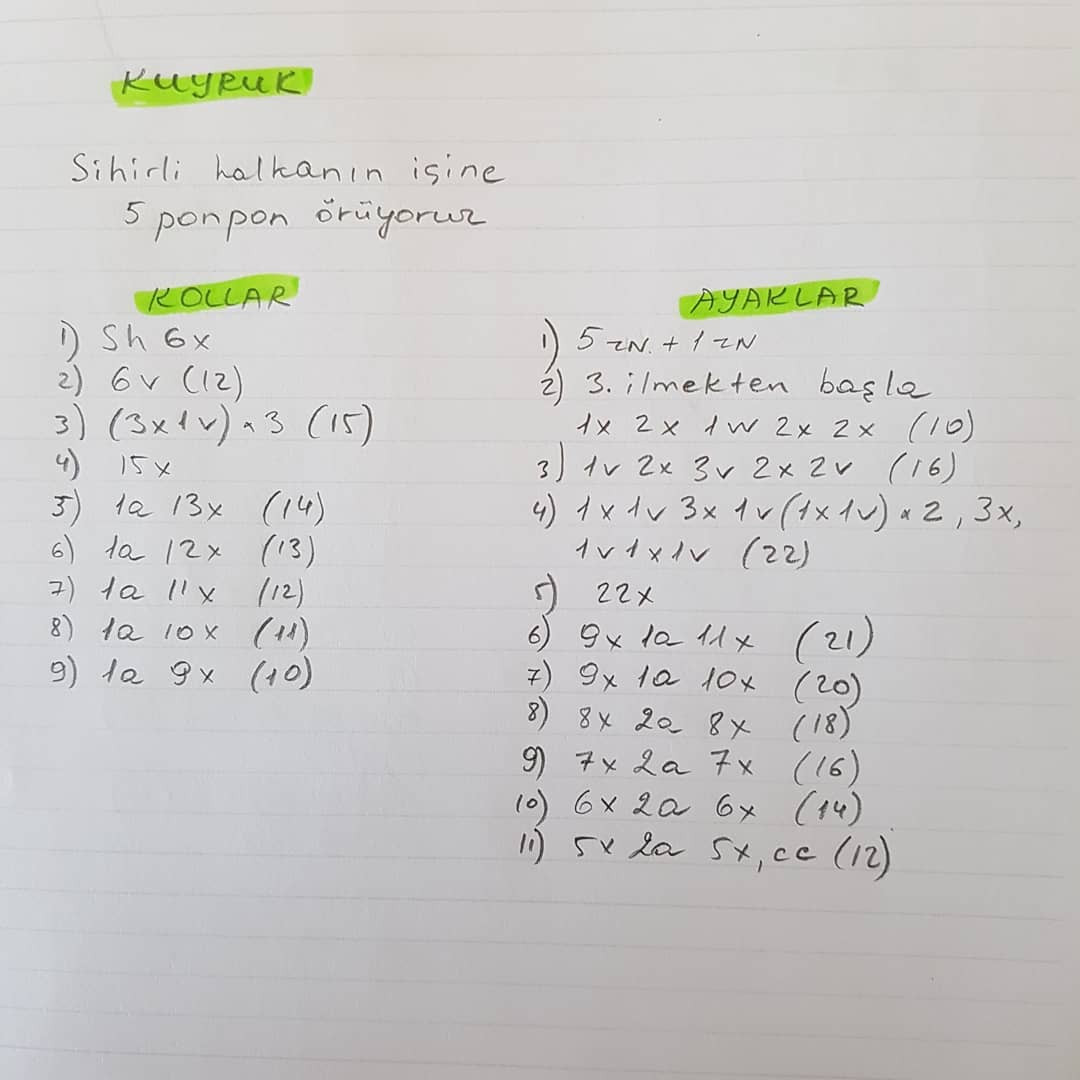 KUYRUK
Sihirli halkanın içine
5 ponpon örüyoruz
KOLLAR
1) Sh 6x
2) 6v (12)
3) (3x1v) * 3 (15)
4) 15x
5) 1a 13x (14)
6) 1a 12x (13)
7) 1a 11x (12)
8) 1a 10x (11)
9) 1a 9x (10)
AYAKLAR
1) 5 zN. + 1 zN
2) 3. ilmekten başla
1x 2x 1w 2x 2x (10)
3) 1v 2x 3v 2x 2v (16)
4) 1x 1v 3x 1v (1x1v) * 2, 3x,
1v1x1v (22)
5) 22x
6) 9x 1a 11x (21)
7) 9x 1a 10x (20)
8) 8x 2a 8x (18)
9) 7x 2a 7x (16)
10) 6x 2a 6x (14)
11) 5x 2a 5x, cc (12)